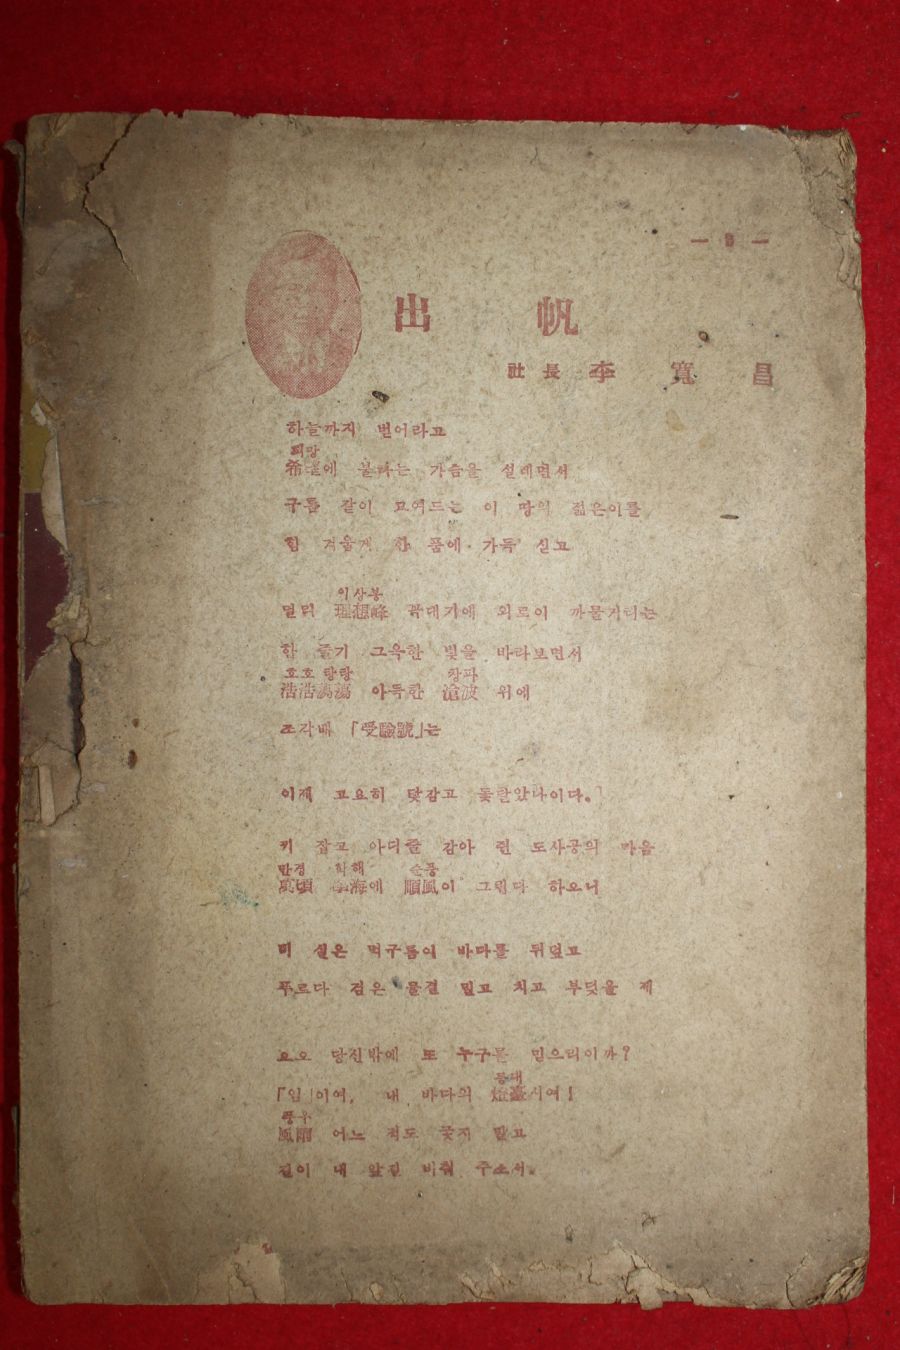 出 帆
社長 李 寬 昌
하늘까지 벋어라고
희망
希望에 불타는 가슴을 설레면서
구름 같이 모여드는 이 땅의 젊은이를
힘 겨웁게 한 품에 가득 싣고
이상봉
멀리 理想峰 꼭대기에 외로이 까물거리는
한 줄기 그윽한 빛을 바라보면서
호호 탕탕 창파
浩浩蕩蕩 아득한 滄波 위에
조각배 「受驗號」는
이제 고요히 닻감고 돛달았나이다.
키 잡고 아디줄 감아 쥔 도사공의 마음
만경 학해 순풍
萬頃 學海에 順風이 그립다 하오니
비 실은 먹구름이 바다를 뒤덮고
푸르다 검은 물결 밀고 치고 부딪울 제
요오 당신밖에 또 누구를 믿으리이까?
등대
「임」이여, 내 바다의 燈臺시여!
풍우
風雨 어느 적도 궂지 말고
길이 내 앞길 비춰 주소서.